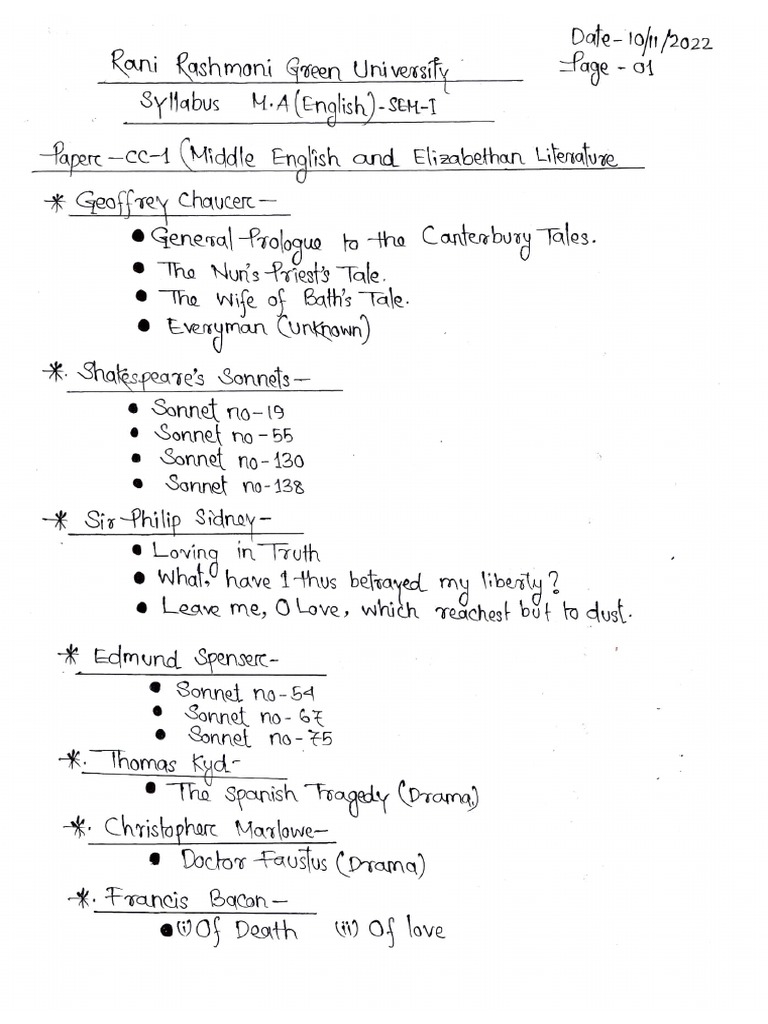 Date-10/11/2022
Rani Rashmoni Green University
Page-01
Syllabus M.A(English)-SEM-I
Paper-CC-1 (Middle English and Elizabethan Literature
* Geoffrey Chaucer-
• General Prologue to the Canterbury Tales.
• The Nun's Priest's Tale.
• The Wife of Bath's Tale.
• Everyman (Unknown)
*. Shakespeare's Sonnets-
• Sonnet no-19
• Sonnet no-55
• Sonnet no-130
• Sonnet no-138
* Sir Philip Sidney-
• Loving in Truth
• What, have I thus betrayed my liberty?
• Leave me, O Love, which reachest but to dust.
* Edmund Spenser-
• Sonnet no-54
• Sonnet no-67
• Sonnet no-75
*. Thomas Kyd-
• The Spanish Tragedy (Drama)
*. Christopher Marlowe-
• Doctor Faustus (Drama)
*. Francis Bacon-
• (i) Of Death (ii) Of love